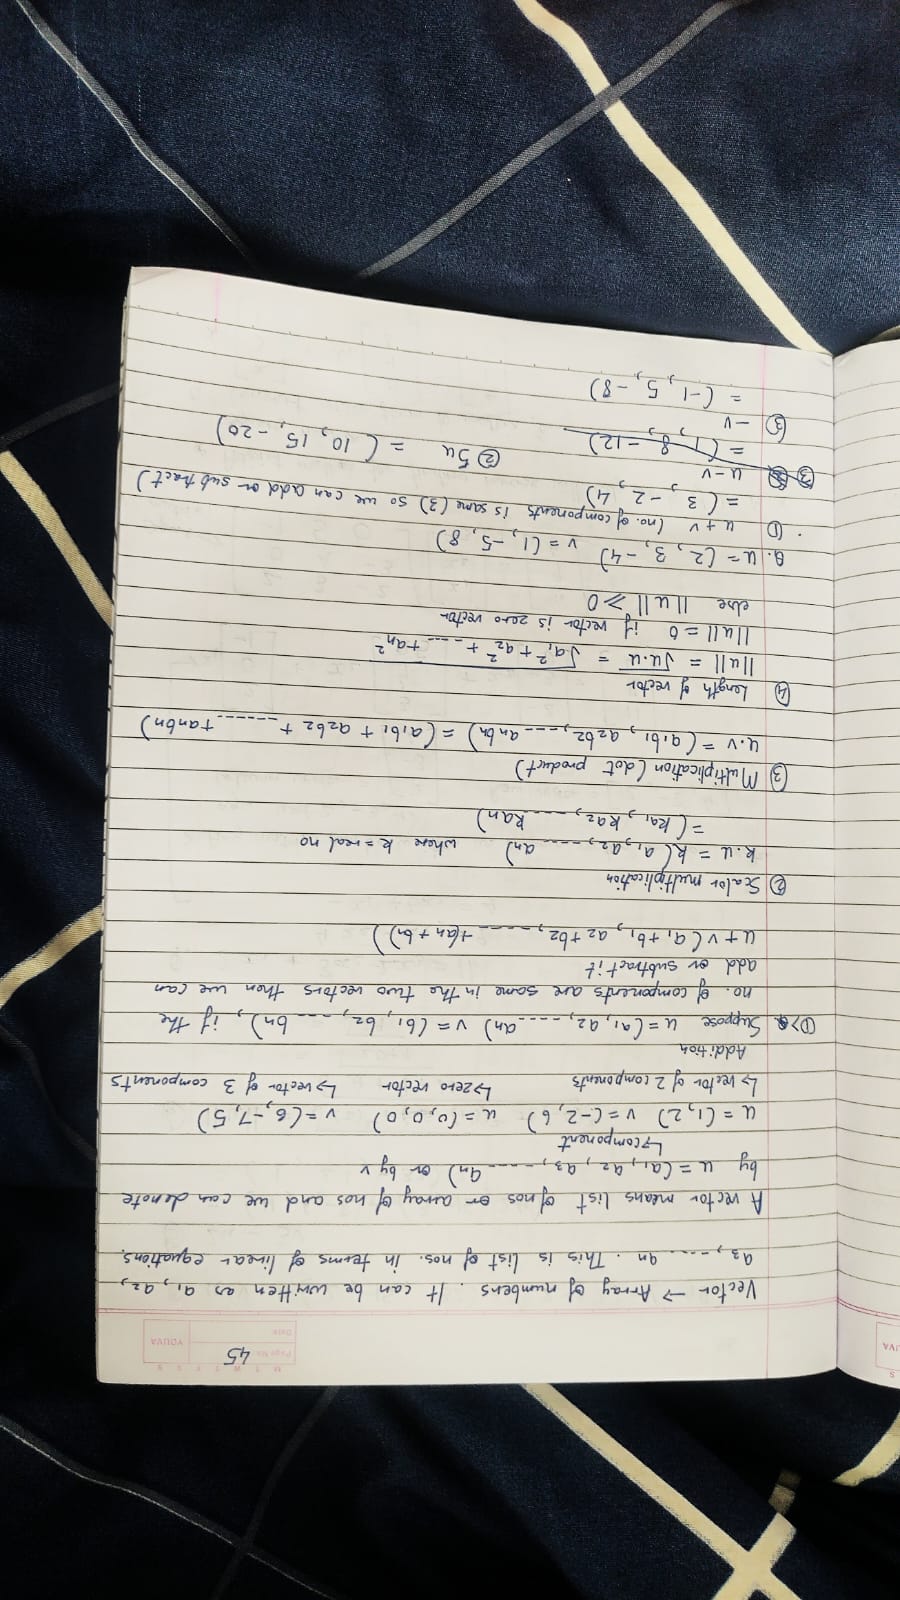 M T W T F S S
Page No. 45
Date:
YOUVA
S
UVA
Vector → Array of numbers. It can be written as a₁, a₂,
a₃, ---- an. This is list of nos. in terms of linear equations.
A vector means list of nos or array of nos and we can denote
by u = (a₁, a₂, a₃, ---- an) or by v
↳component
u = (1, 2) v = (-2, 6) u = (0, 0, 0) v = (6, -7, 5)
↳ vector of 2 components ↳ zero vector ↳ vector of 3 components
Addition
①> Suppose u = (a₁, a₂, ---- an) v = (b₁, b₂, --- bn), if the
no. of components are same in the two vectors then we can
add or subtract it
u + v (a₁ + b₁, a₂ + b₂, ---- + (an + bn))
② Scalor multiplication
k.u = k( a₁, a₂, ---- an) where k = real no
= ( ka₁, ka₂, ---- kan)
③ Multiplication (dot product)
u.v = (a₁b₁, a₂b₂, --- anbn) = (a₁b₁ + a₂b₂ + ------ + anbn)
④ Length of vector
||u|| = √u.u = √a₁² + a₂² + ---- + an²
||u|| = 0 if vector is zero vector
else ||u|| ≥ 0
Q. u = (2, 3, -4) v = (1, -5, 8)
① u + v (no. of components is same (3) so we can add or subtract)
= (3, -2, 4)
③ u - v ② 5u = ( 10, 15, -20)
= (1, 8, -12)
③ -v
= (-1, 5, -8)